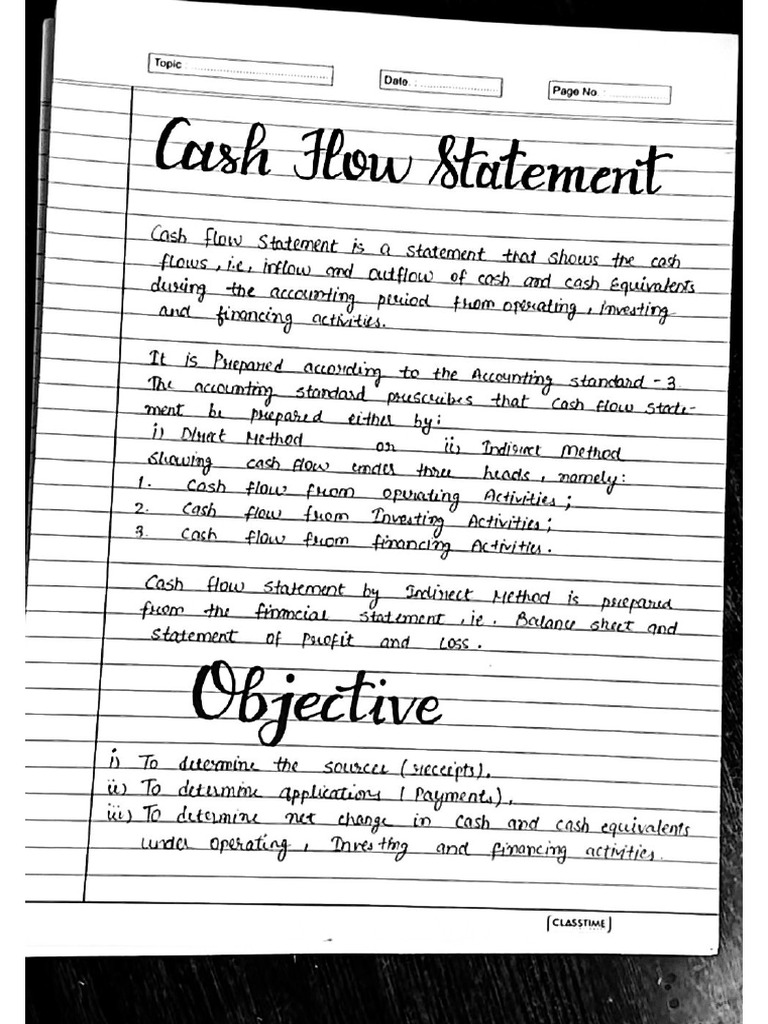 Topic : ............................
Date. : ............................
Page No. : ............................
Cash Flow Statement
Cash flow statement is a statement that shows the cash
flows, i.e, inflow and outflow of cash and cash Equivalents
during the accounting period from operating, investing
and financing activities.
It is Prepared according to the Accounting standard - 3.
The accounting standard prescribes that cash flow state-
ment be prepared either by:
i) Direct Method or ii) Indirect Method
showing cash flow under three heads, namely:
1. Cash flow from operating Activities;
2. Cash flow from Investing Activities;
3. Cash flow from financing Activities.
Cash flow statement by Indirect Method is prepared
from the financial statement, ie. Balance sheet and
statement of Profit and Loss.
Objective
i) To determine the sources (receipts),
ii) To determine applications (Payments),
iii) To determine net change in cash and cash equivalents
under operating, Investing and financing activities.
[CLASSTIME]